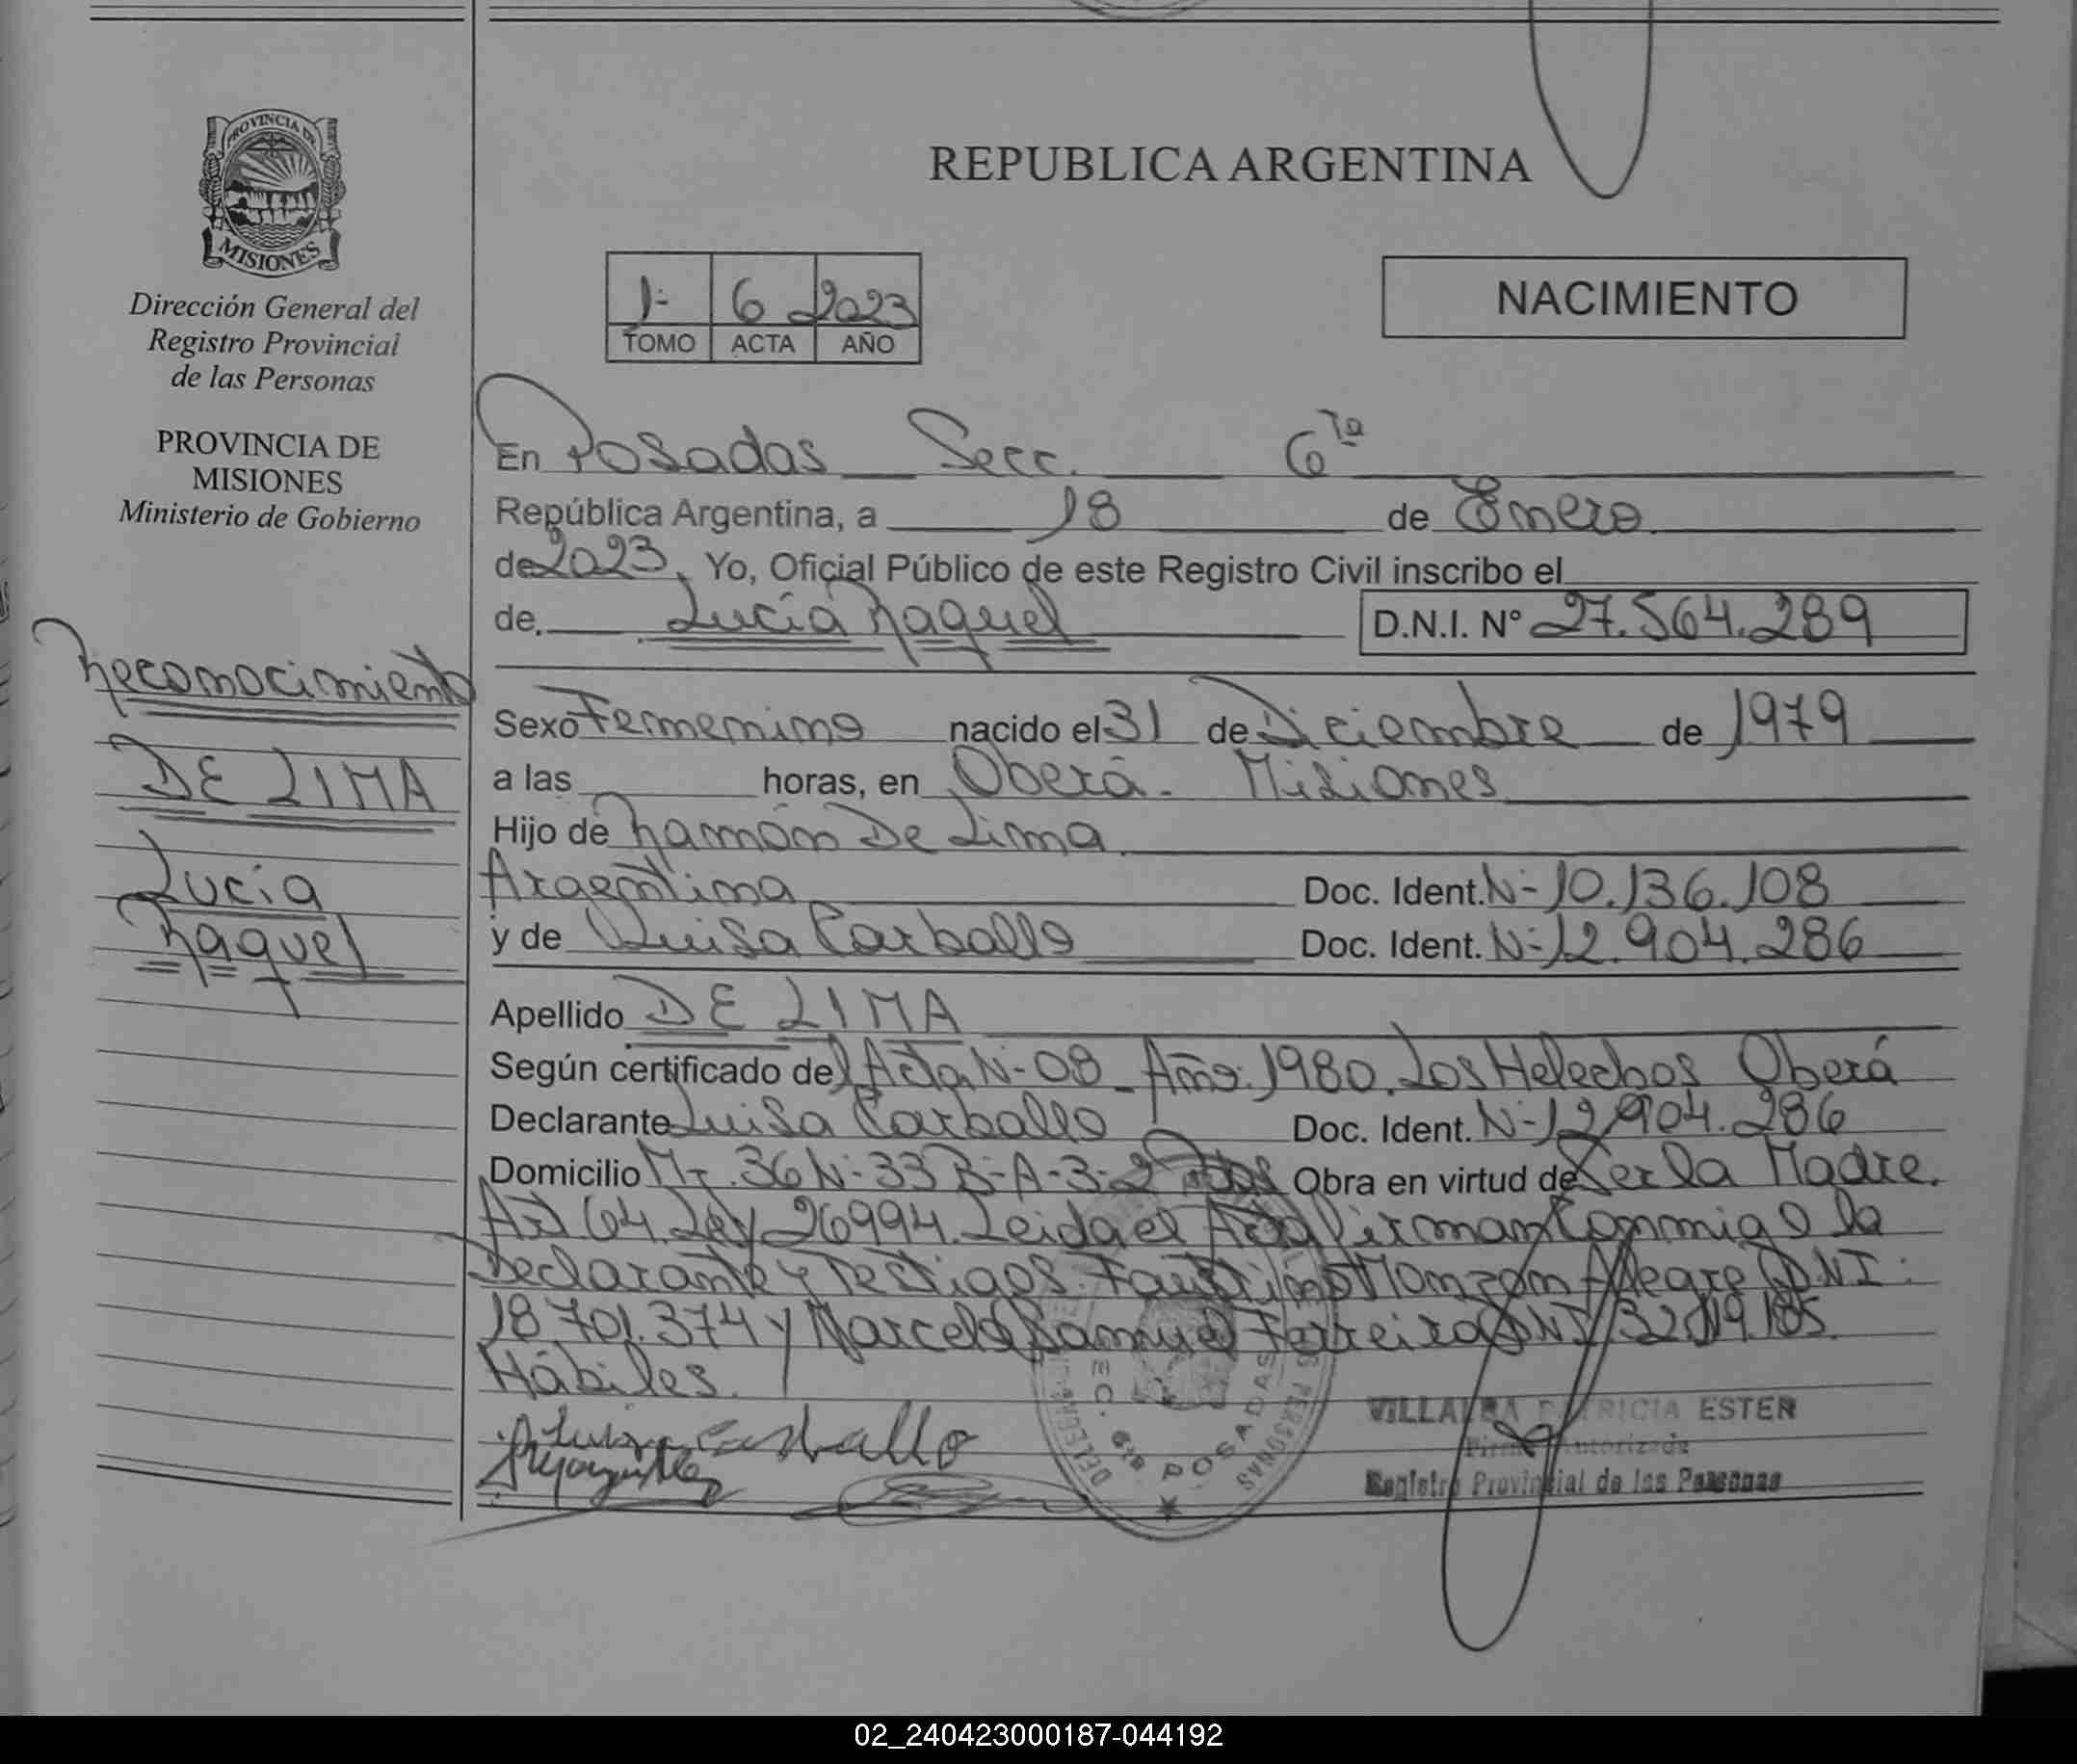 PROVINCIA DE
MISIONES
Dirección General del
Registro Provincial
de las Personas
PROVINCIA DE
MISIONES
Ministerio de Gobierno
Reconocimiento
DE LIMA
Lucía
Raquel
REPUBLICA ARGENTINA
1- 6 2023
TOMO ACTA AÑO
NACIMIENTO
En Posadas Secc. 6ta
República Argentina, a 18 de Enero
de 2023, Yo, Oficial Público de este Registro Civil inscribo el
de. Lucía Raquel D.N.I. Nº 27.564.289
Sexo Femenino nacido el 31 de Diciembre de 1979
a las horas, en Oberá - Misiones
Hijo de Ramón De Lima
Argentina Doc. Ident. N- 10.136.108
y de Luisa Carballo Doc. Ident. N- 12.904.286
Apellido DE LIMA
Según certificado del Acta N- 08 - Año: 1980. Los Helechos Oberá
Declarante Luisa Carballo Doc. Ident. N- 12.904.286
Domicilio Mz. 36 N- 33 B- A-3-2 Pdas Obra en virtud de Ser la Madre.
Art 64. Ley 26994. Leida el Acta firman Conmigo la
Declarante y Testigos. Faustino Monzon Alegre DNI:
18.701.374 y Marcelo Samuel Ferreira DNI 32.119.185
Hábiles.
Luisa Carballo
SEC. 6ta POSADAS
VILLALBA PATRICIA ESTER
Firma Autorizada
Registro Provincial de las Personas
02_240423000187-044192